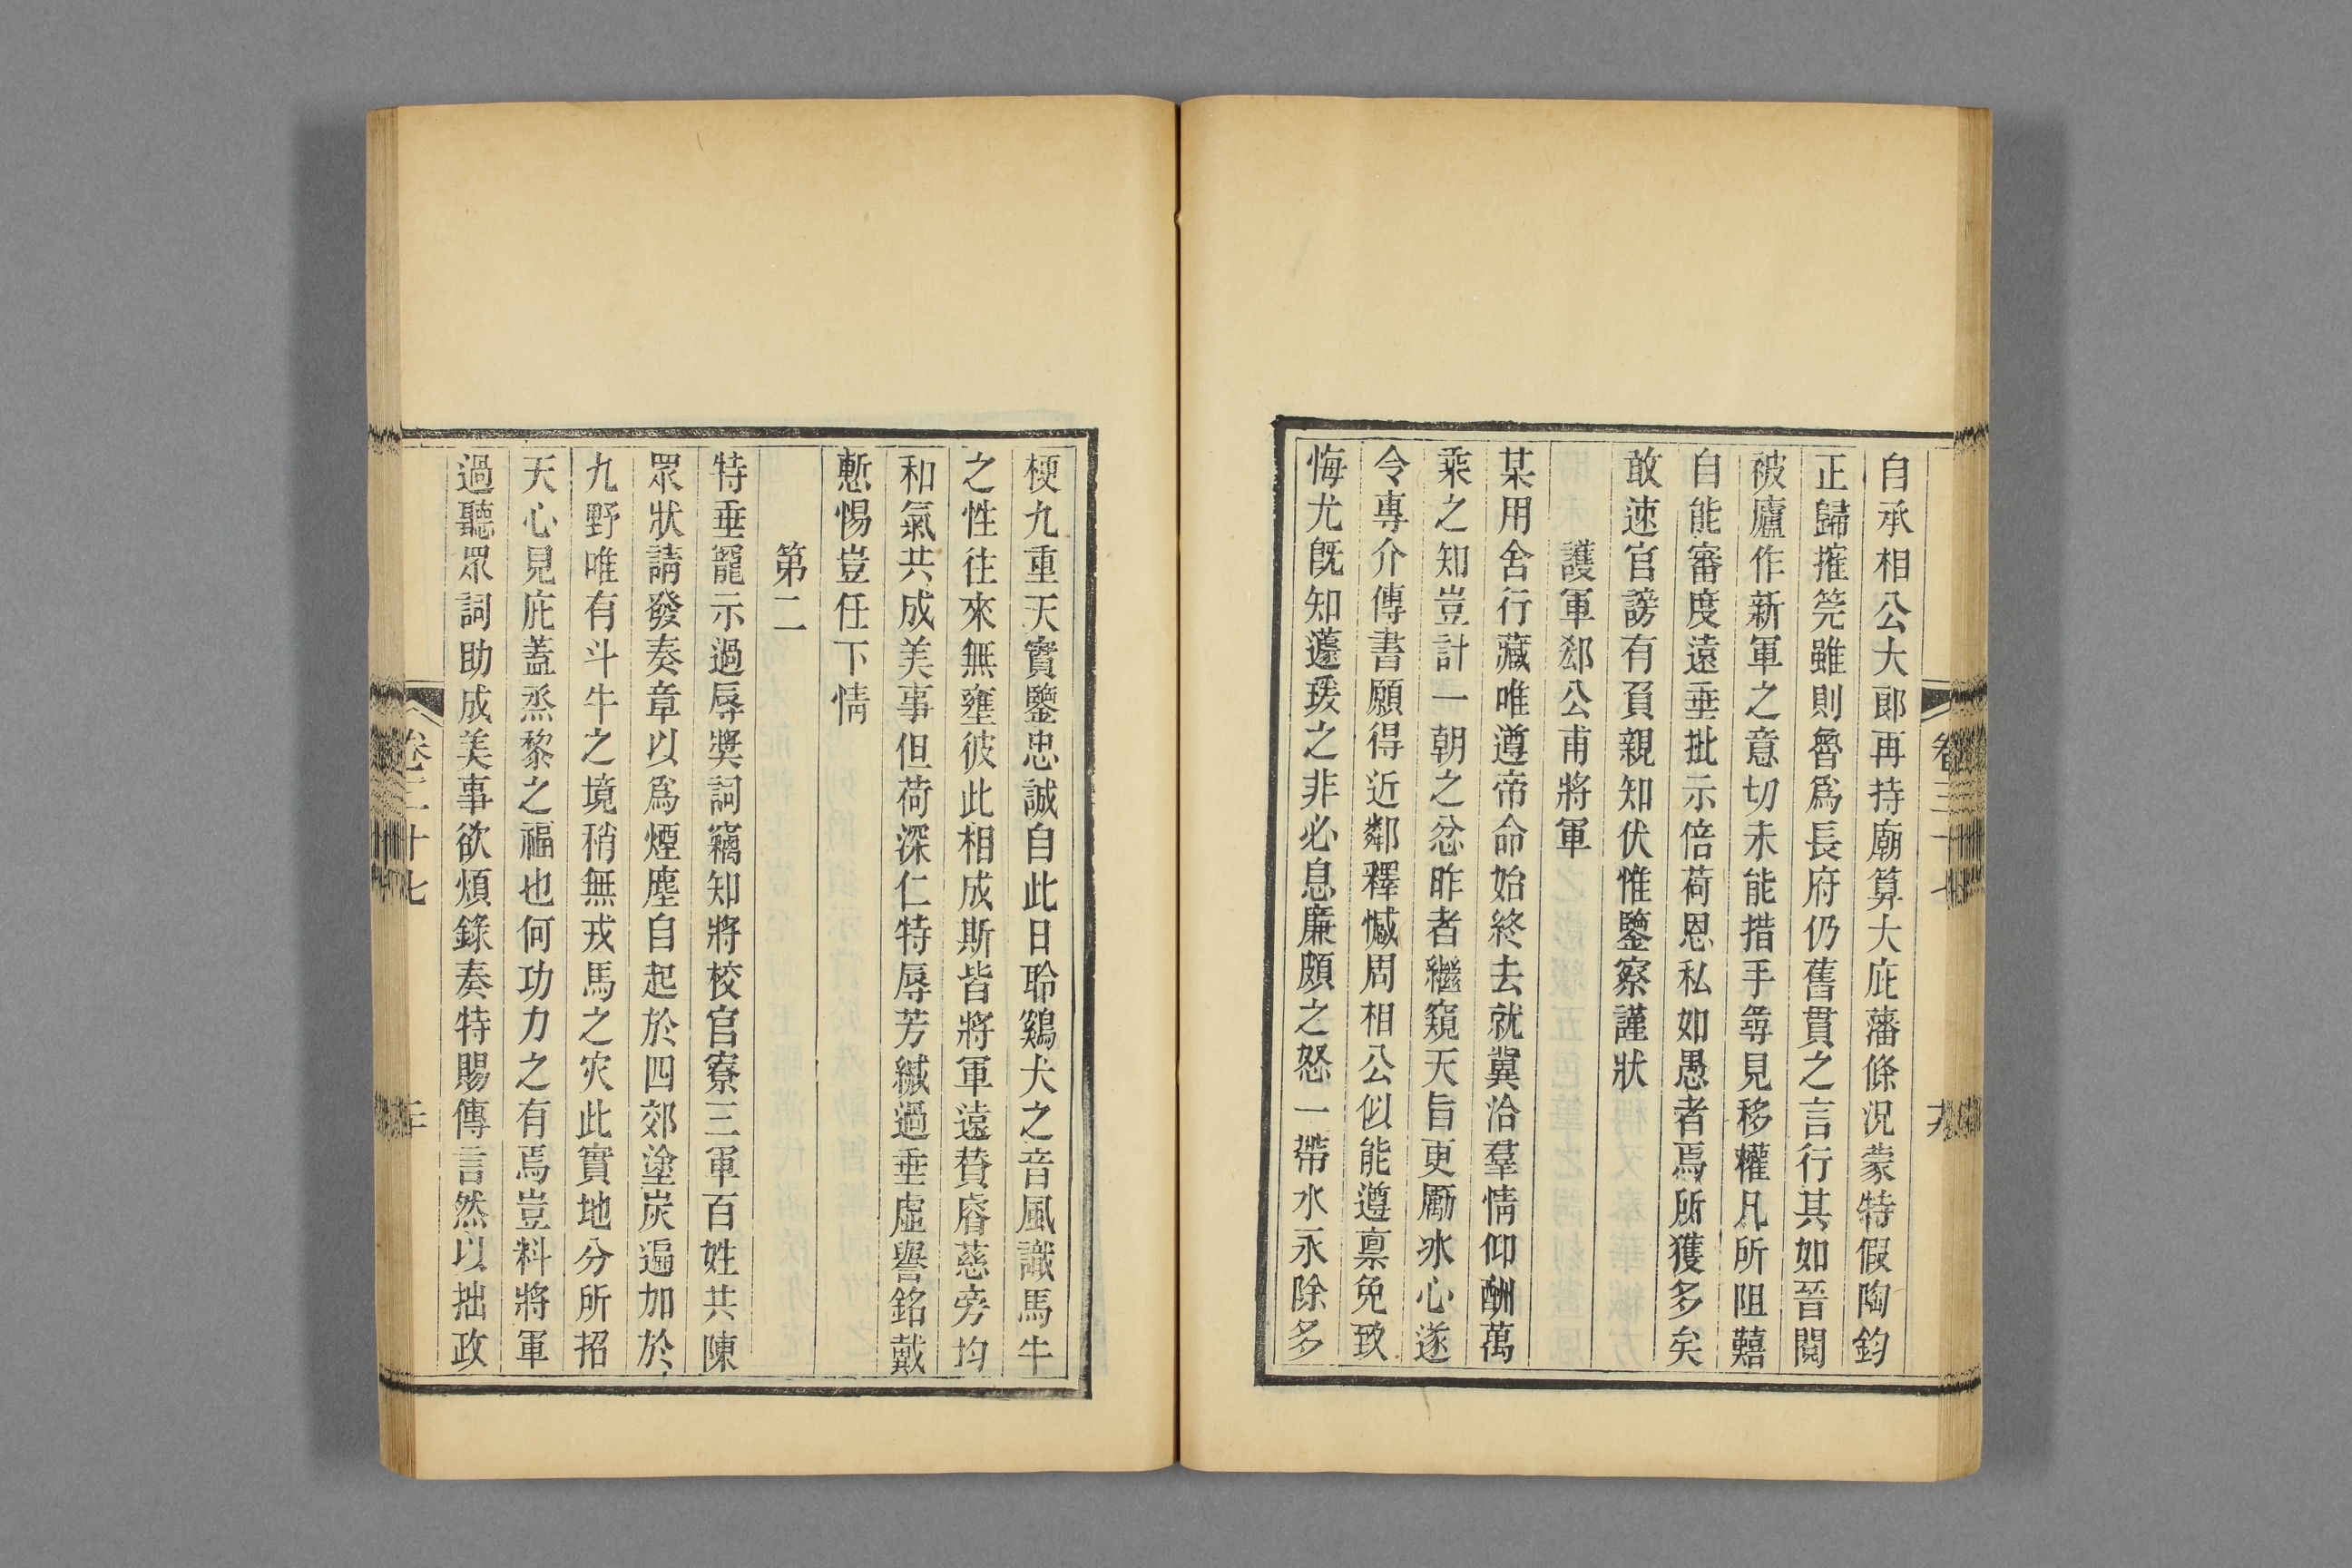 自承相公大郎再持廟算大庇藩條況蒙特假陶鈞
正歸搉筦雖則魯爲長府仍舊貫之言行其如晉閱
被廬作新軍之意切未能措手尋見移權凡所阻囏
自能審度遠垂批示倍荷恩私如愚者焉所獲多矣
敢速官謗有負親知伏惟鑒察謹狀
護軍郄公甫將軍
某用舍行藏唯遵帝命始終去就冀洽羣情仰酬萬
乘之知豈計一朝之忿昨者繼窺天旨更勵冰心遂
令專介傳書願得近鄰釋憾周相公似能遵禀免致
悔尤旣知蘧瑗之非必息廉頗之怒一帶水永除多
卷三十七
梗九重天實鑒忠誠自此日聆鷄犬之音風識馬牛
之性往來無壅彼此相成斯皆將軍遠贊睿慈旁均
和氣共成美事但荷深仁特辱芳緘過垂虛譽銘戴
慙惕豈任下情
第二
特垂寵示過辱奬詞竊知將校官寮三軍百姓共陳
眾狀請發奏章以爲煙塵自起於四郊塗炭遍加於
九野唯有斗牛之境稍無戎馬之灾此實地分所招
天心見庇蓋烝黎之福也何功力之有焉豈料將軍
過聽眾詞助成美事欲煩錄奏特賜傳言然以拙政
卷三十七